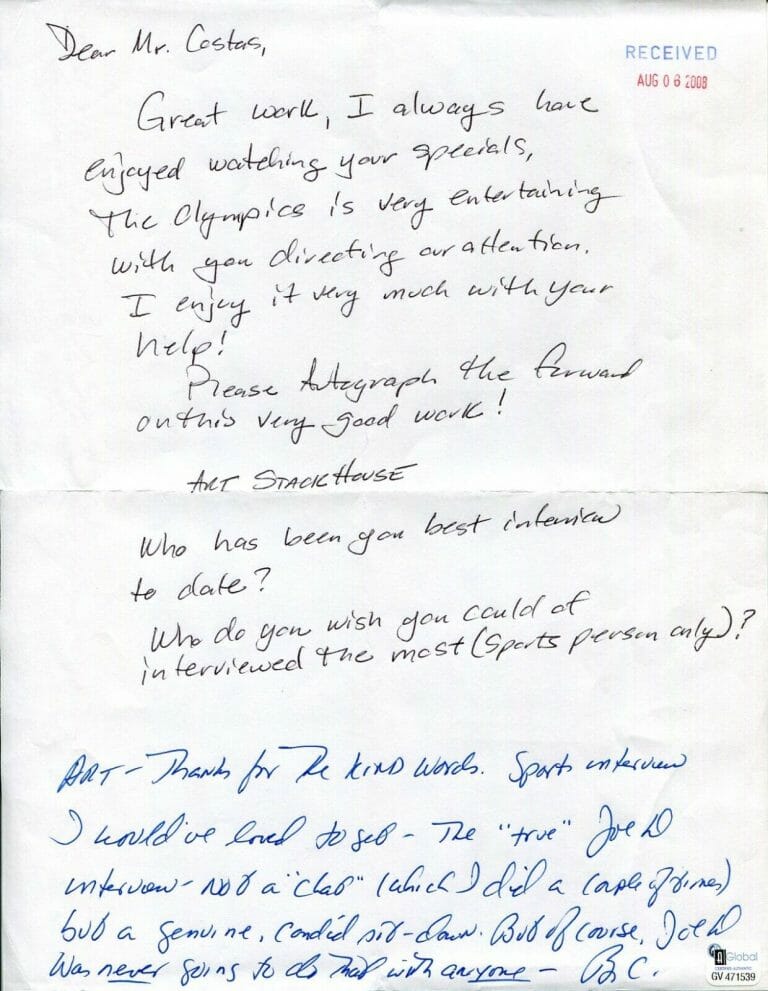 Dear Mr. Costas,
RECEIVED
AUG 06 2008
Great work, I always have
enjoyed watching your specials,
The Olympics is very entertaining
with you directing our attention.
I enjoy it very much with your
help!
Please Autograph the forward
on this very good work!
ART STACKHOUSE
Who has been you best interview
to date?
Who do you wish you could of
interviewed the most (sports person only)?
ART - Thanks for The KIND words. Sports interview
I would've loved to get - The "true" Joe D
interview - not a "chat" (which I did a couple of times)
but a genuine, candid sit-down. But of course, Joe D
was never going to do that with anyone - B.C.
Global
CERTIFIED AUTHENTIC
GV 471539